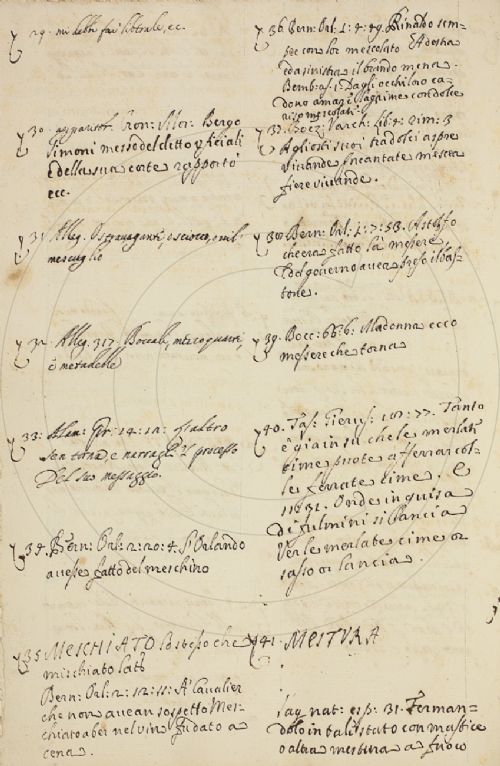 29. mi debb far
30. apparistr. Cron: Mor: Bergo
simoni messo del detto
della sua corte rapportò
ecc.
31. Alleg.
mescuglio
32. Alleg. 317. Boccale, mezzoquarti,
ò metadelle
33: Alam: Gir: 14: 12:
sen torna, e narragli'l processo
Del suo messaggio.
34. Bern: Orl: 2: 20: 4. S'Orlando
avesse fatto del meschino
35. MESCHIATO lo stesso che
mischiato
Bern: Orl: 2: 12: 11: Al Cavalier
che non avean sospetto Mes-
chiato a ber nel vin fu dato a
cena.
36. Bern: Orl: 1: 4: 49. Rinaldo sem-
pre con lor mescolato A destra
ed a sinistra il brando mena.
Bemb: as: 1: Dagli occhi loro ca-
dono amare lagrime con dolce
riso mescolati.
37. Boez: Varch: lib: 4: rim: 3
Agli osti suoi tra dolci aspre
vivande Incantate mesce a
fiere vivande.
38. Bern: Orl: 1: 7: 53. Astolfo
che era fatto là messere,
E del governo avea preso il bas-
tone.
39. Bocc: 66: 6: Madonna ecco
messere che torna
40. Tas: Gerus: 18: 77. Tanto
è già in su che le merlate
cime puote afferrar col-
le ferrate cime. E
11: 31. Onde in guisa
di fulmini si lancia
Ver le merlate cime or
sasso or lancia.
41. MESTURA
Sag nat: esp: 31. Ferman-
dolo in tale stato con mastice
o altra mestura a fuoco